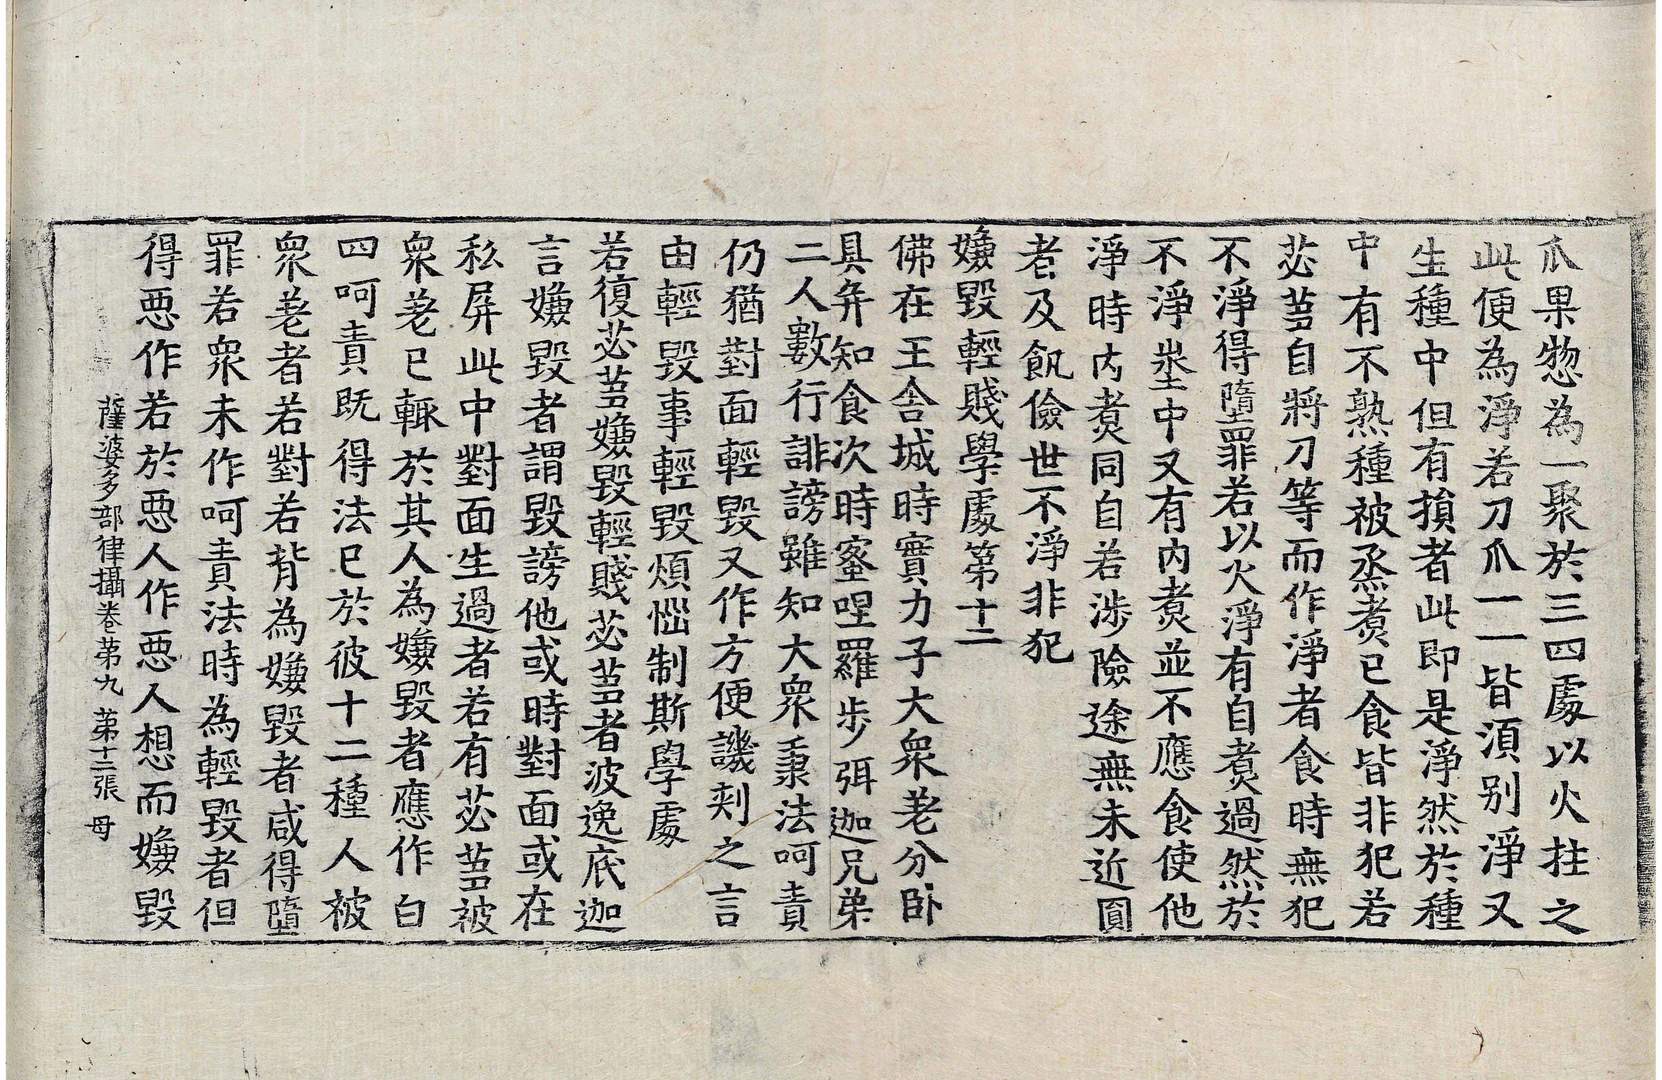 瓜果惣為一聚於三四處以火拄之
此便為淨若刀爪一一皆須別淨又
生種中但有損者此即是淨然於種
中有不熟種被烝煑已食皆非犯若
苾芻自將刀等而作淨者食時無犯
不淨得墮罪若以火淨有自煑過然於
不淨坐中又有內煑並不應食使他
淨時內煑同自若涉險途無未近圓
者及飢儉世不淨非犯
嫌毀輕賤學處第十二
佛在王舍城時實力子大衆差分卧
具弁知食次時蜜呾羅步弭迦兄弟
二人數行誹謗雖知大衆秉法呵責
仍猶對面輕毀又作方便譏刾之言
由輕毀事輕毀煩惱制斯學處
若復苾芻嫌毀輕賤苾芻者波逸底迦
言嫌毀者謂毀謗他或時對面或在
私屏此中對面生過者若有苾芻被
衆差已輙於其人為嫌毀者應作白
四呵責既得法已於彼十二種人被
衆差者若對若背為嫌毀者咸得墮
罪若衆未作呵責法時為輕毀者但
得惡作若於惡人作惡人想而嫌毀
薩婆多部律攝卷第九 第十二張 母